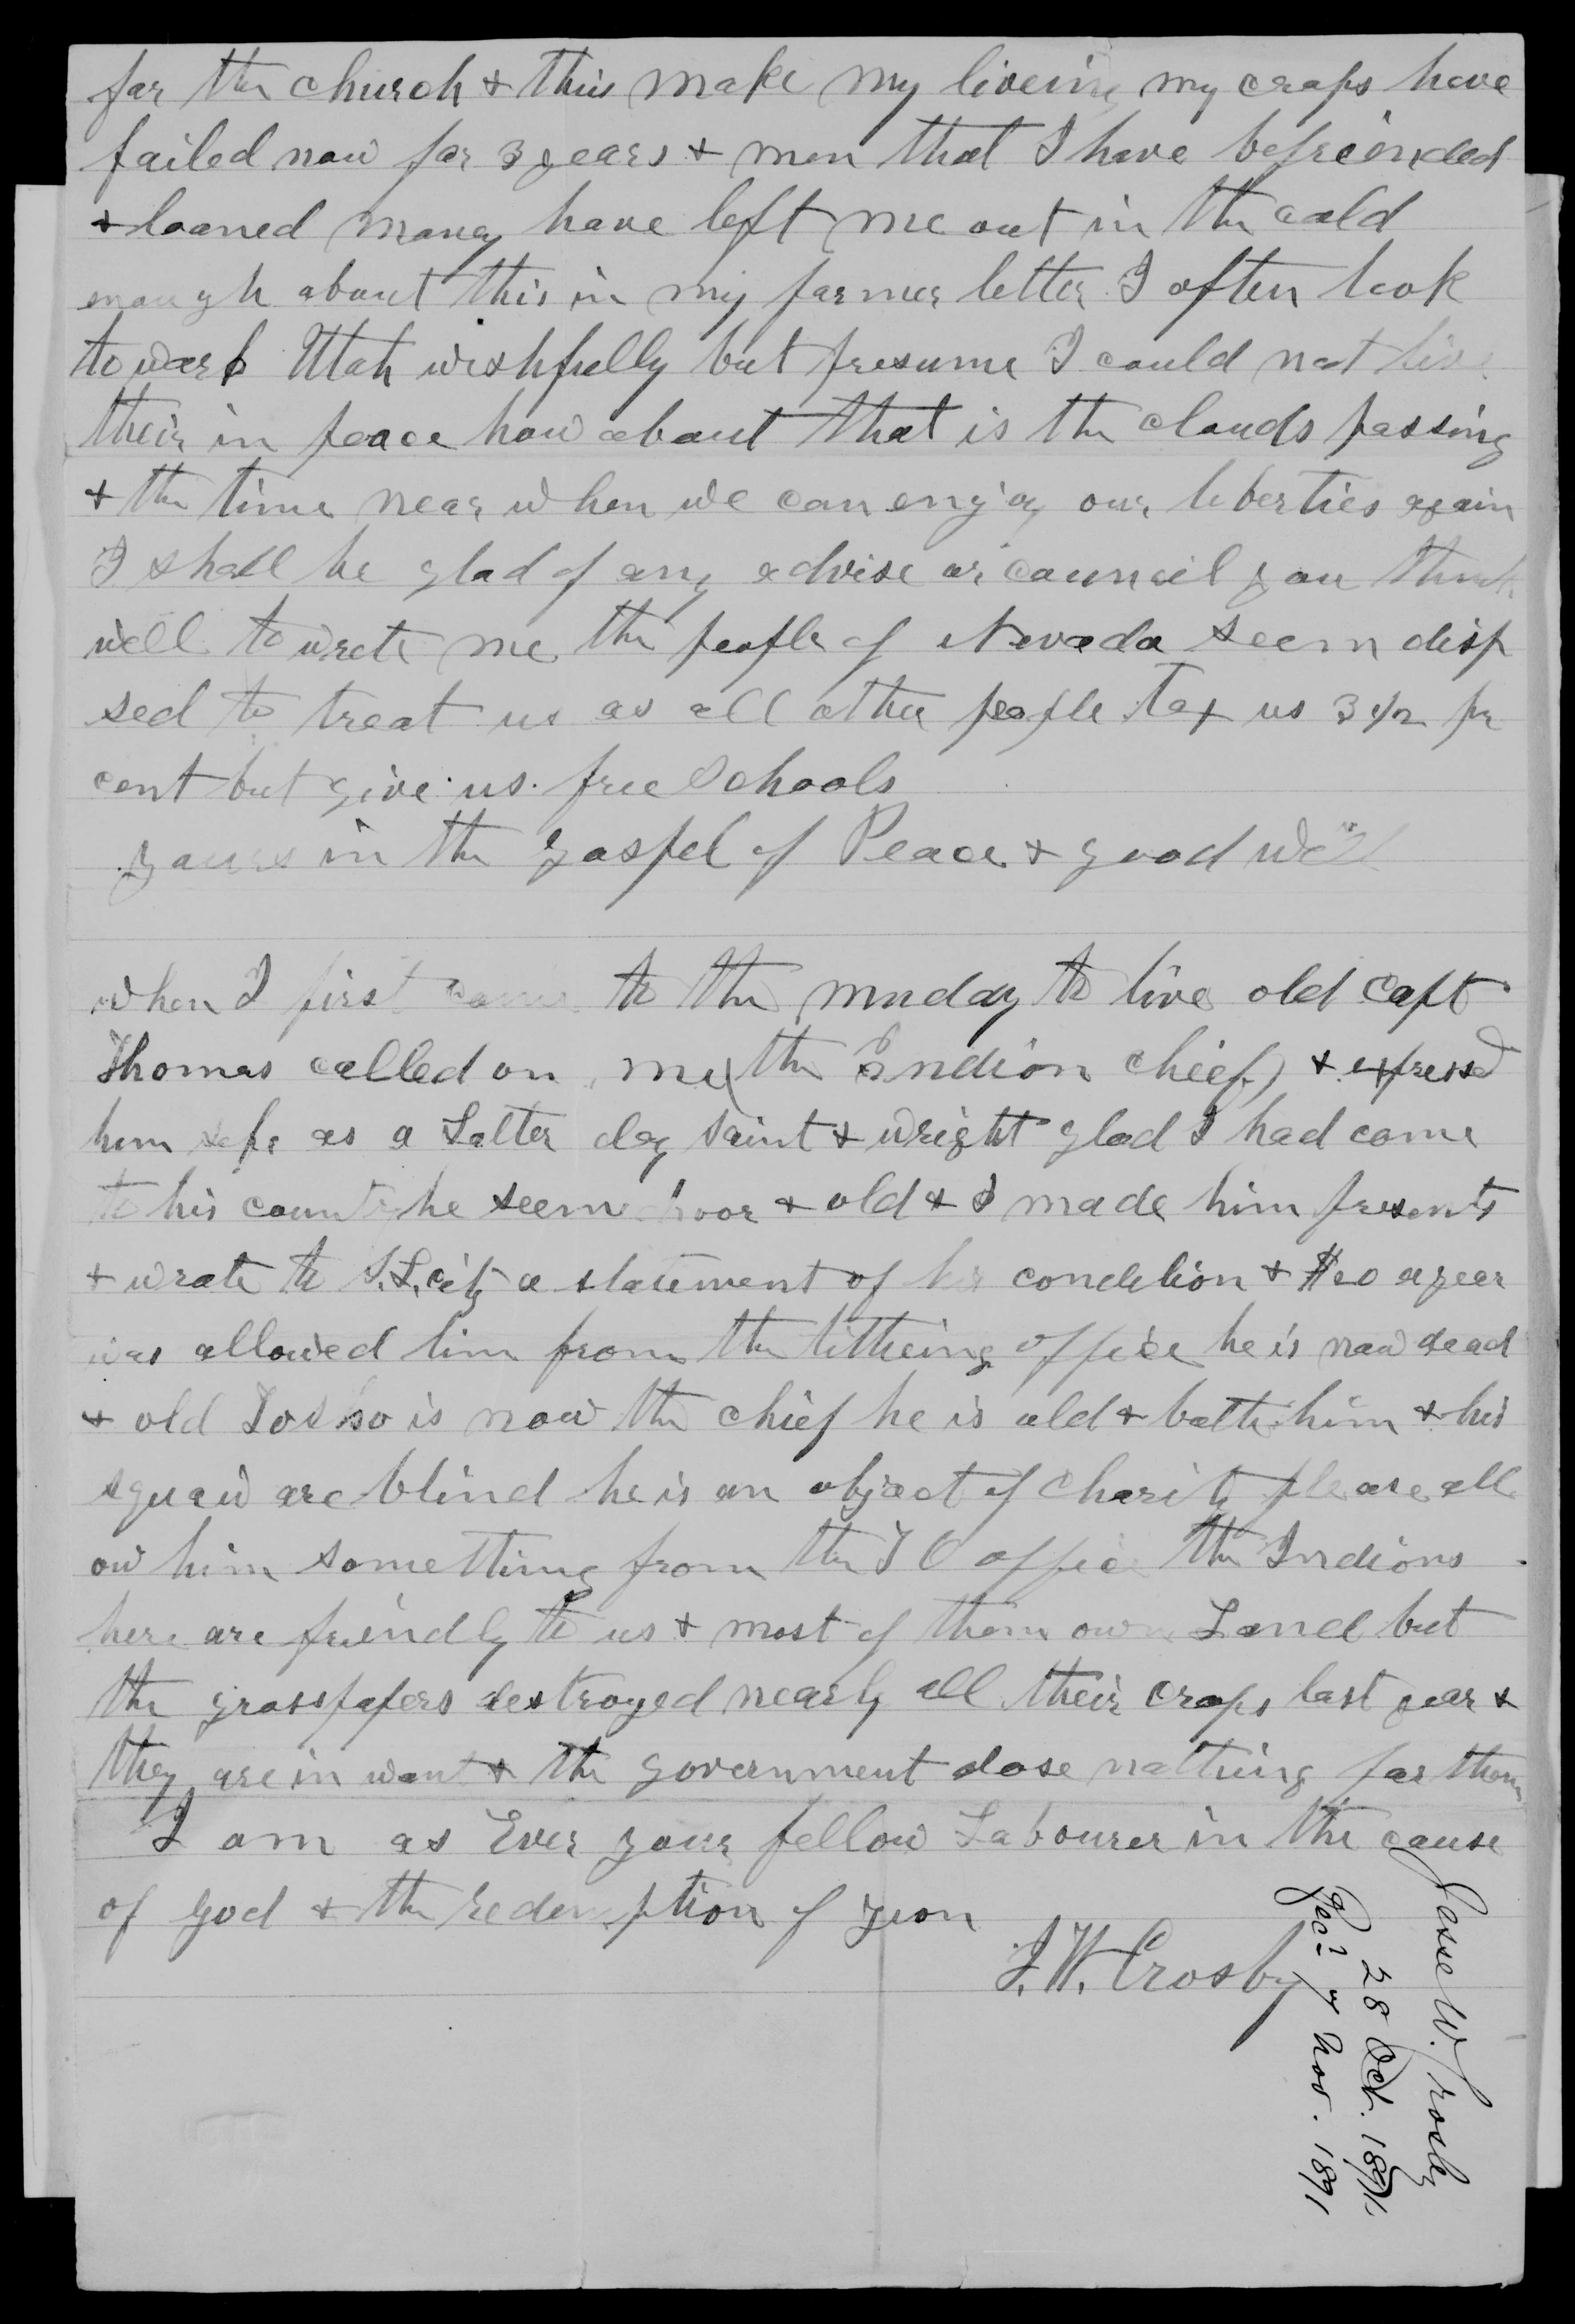 for the church & thus make my liveing my crops have
failed now for 3 years & men that I have befreinded
& loaned money have left me out in the cold
enough about this in my former letter I often look
toward Utah wishfully but presume I could not live
their in peace how about that is the clouds passing
& the time near when we can enjoy our liberties again
I shall be glad of any advise or council you think
well to wrete me the people of Nevada seem disp
sed to treat us as all other people tax us 3 1/2 pr
cent but give us free schools
yours in the gospel of Peace & good will
when I first came to the muday to live old capt
Thomas called on me (the Indion cheef) & expressed
him self as a Latter day saint & wright glad I had come
to his country he seem poor & old & I made him presents
& wrote to S.L. city a statement of his condition & $20 a year
was allowed him from the titheing office he is now dead
& old is now the chief he is old & bothe him & his
squaw are blind he is an object of charity please all
ow him something from the T O office the Indions
here are friendly to us & most of them own Land but
the grasspapers destroyed nearly all their crops last year &
they are in want & the government dose nothing for them
I am as Ever your fellow Labourer in the cause
of god & the redemption of zion
J. W. Crosby
Jesse W. Crosby
28 Oct. 1891
Rec'd 7 Nov. 1891